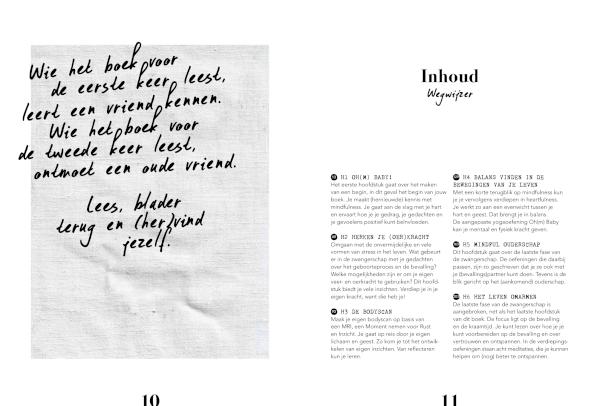 Wie het boek voor
de eerste keer leest,
leert een vriend kennen.
Wie het boek voor
de tweede keer leest,
ontmoet een oude vriend.
Lees, blader
terug en (her)vind
jezelf.
10
Inhoud
Wegwijzer
H1 OH(M) BABY!
Het eerste hoofdstuk gaat over het maken
van een begin, in dit geval het begin van jouw
boek. Je maakt (hernieuwde) kennis met
mindfulness. Je gaat aan de slag met je hart
en ervaart hoe je je gedrag, je gedachten en
je gevoelens positief kunt beïnvloeden.
H2 HERKEN JE (OER)KRACHT
Omgaan met de onvermijdelijke en vele
vormen van stress in het leven. Wat gebeurt
er in de zwangerschap met je gedachten
over het geboorteproces en de bevalling?
Welke mogelijkheden zijn er om je eigen
veer- en oerkracht te gebruiken? Dit hoofd-
stuk biedt je vele inzichten. Verdiep je in je
eigen kracht, want die heb je!
H3 DE BODYSCAN
Maak je eigen bodyscan op basis van
een MRI, een Moment nemen voor Rust
en Inzicht. Je gaat op reis door je eigen
lichaam en geest. Zo kom je tot het ontwik-
kelen van eigen inzichten. Van reflecteren
kun je leren.
H4 BALANS VINDEN IN DE
BEWEGINGEN VAN JE LEVEN
Met een korte terugblik op mindfulness kun
je je vervolgens verdiepen in heartfulness.
Je werkt zo aan een evenwicht tussen je
hart en geest. Dat brengt je in balans.
De aangepaste yogaoefening OH(m) Baby
kan je mentaal en fysiek kracht geven.
H5 MINDFUL OUDERSCHAP
Dit hoofdstuk gaat over de laatste fase van
de zwangerschap. De oefeningen die daarbij
passen, zijn zo geschreven dat je ze ook met
je (bevallings)partner kunt doen. Tevens is de
blik gericht op het (aankomend) ouderschap.
H6 HET LEVEN OMARMEN
De laatste fase van de zwangerschap is
aangebroken, net als het laatste hoofdstuk
van dit boek. De focus ligt op de bevalling
en de kraamtijd. Je kunt lezen over hoe je je
kunt voorbereiden op de bevalling en over
vertrouwen en ontspannen. In de verdiepings-
oefeningen staan acht meditaties, die je kunnen
helpen om (nog) beter te ontspannen.
11